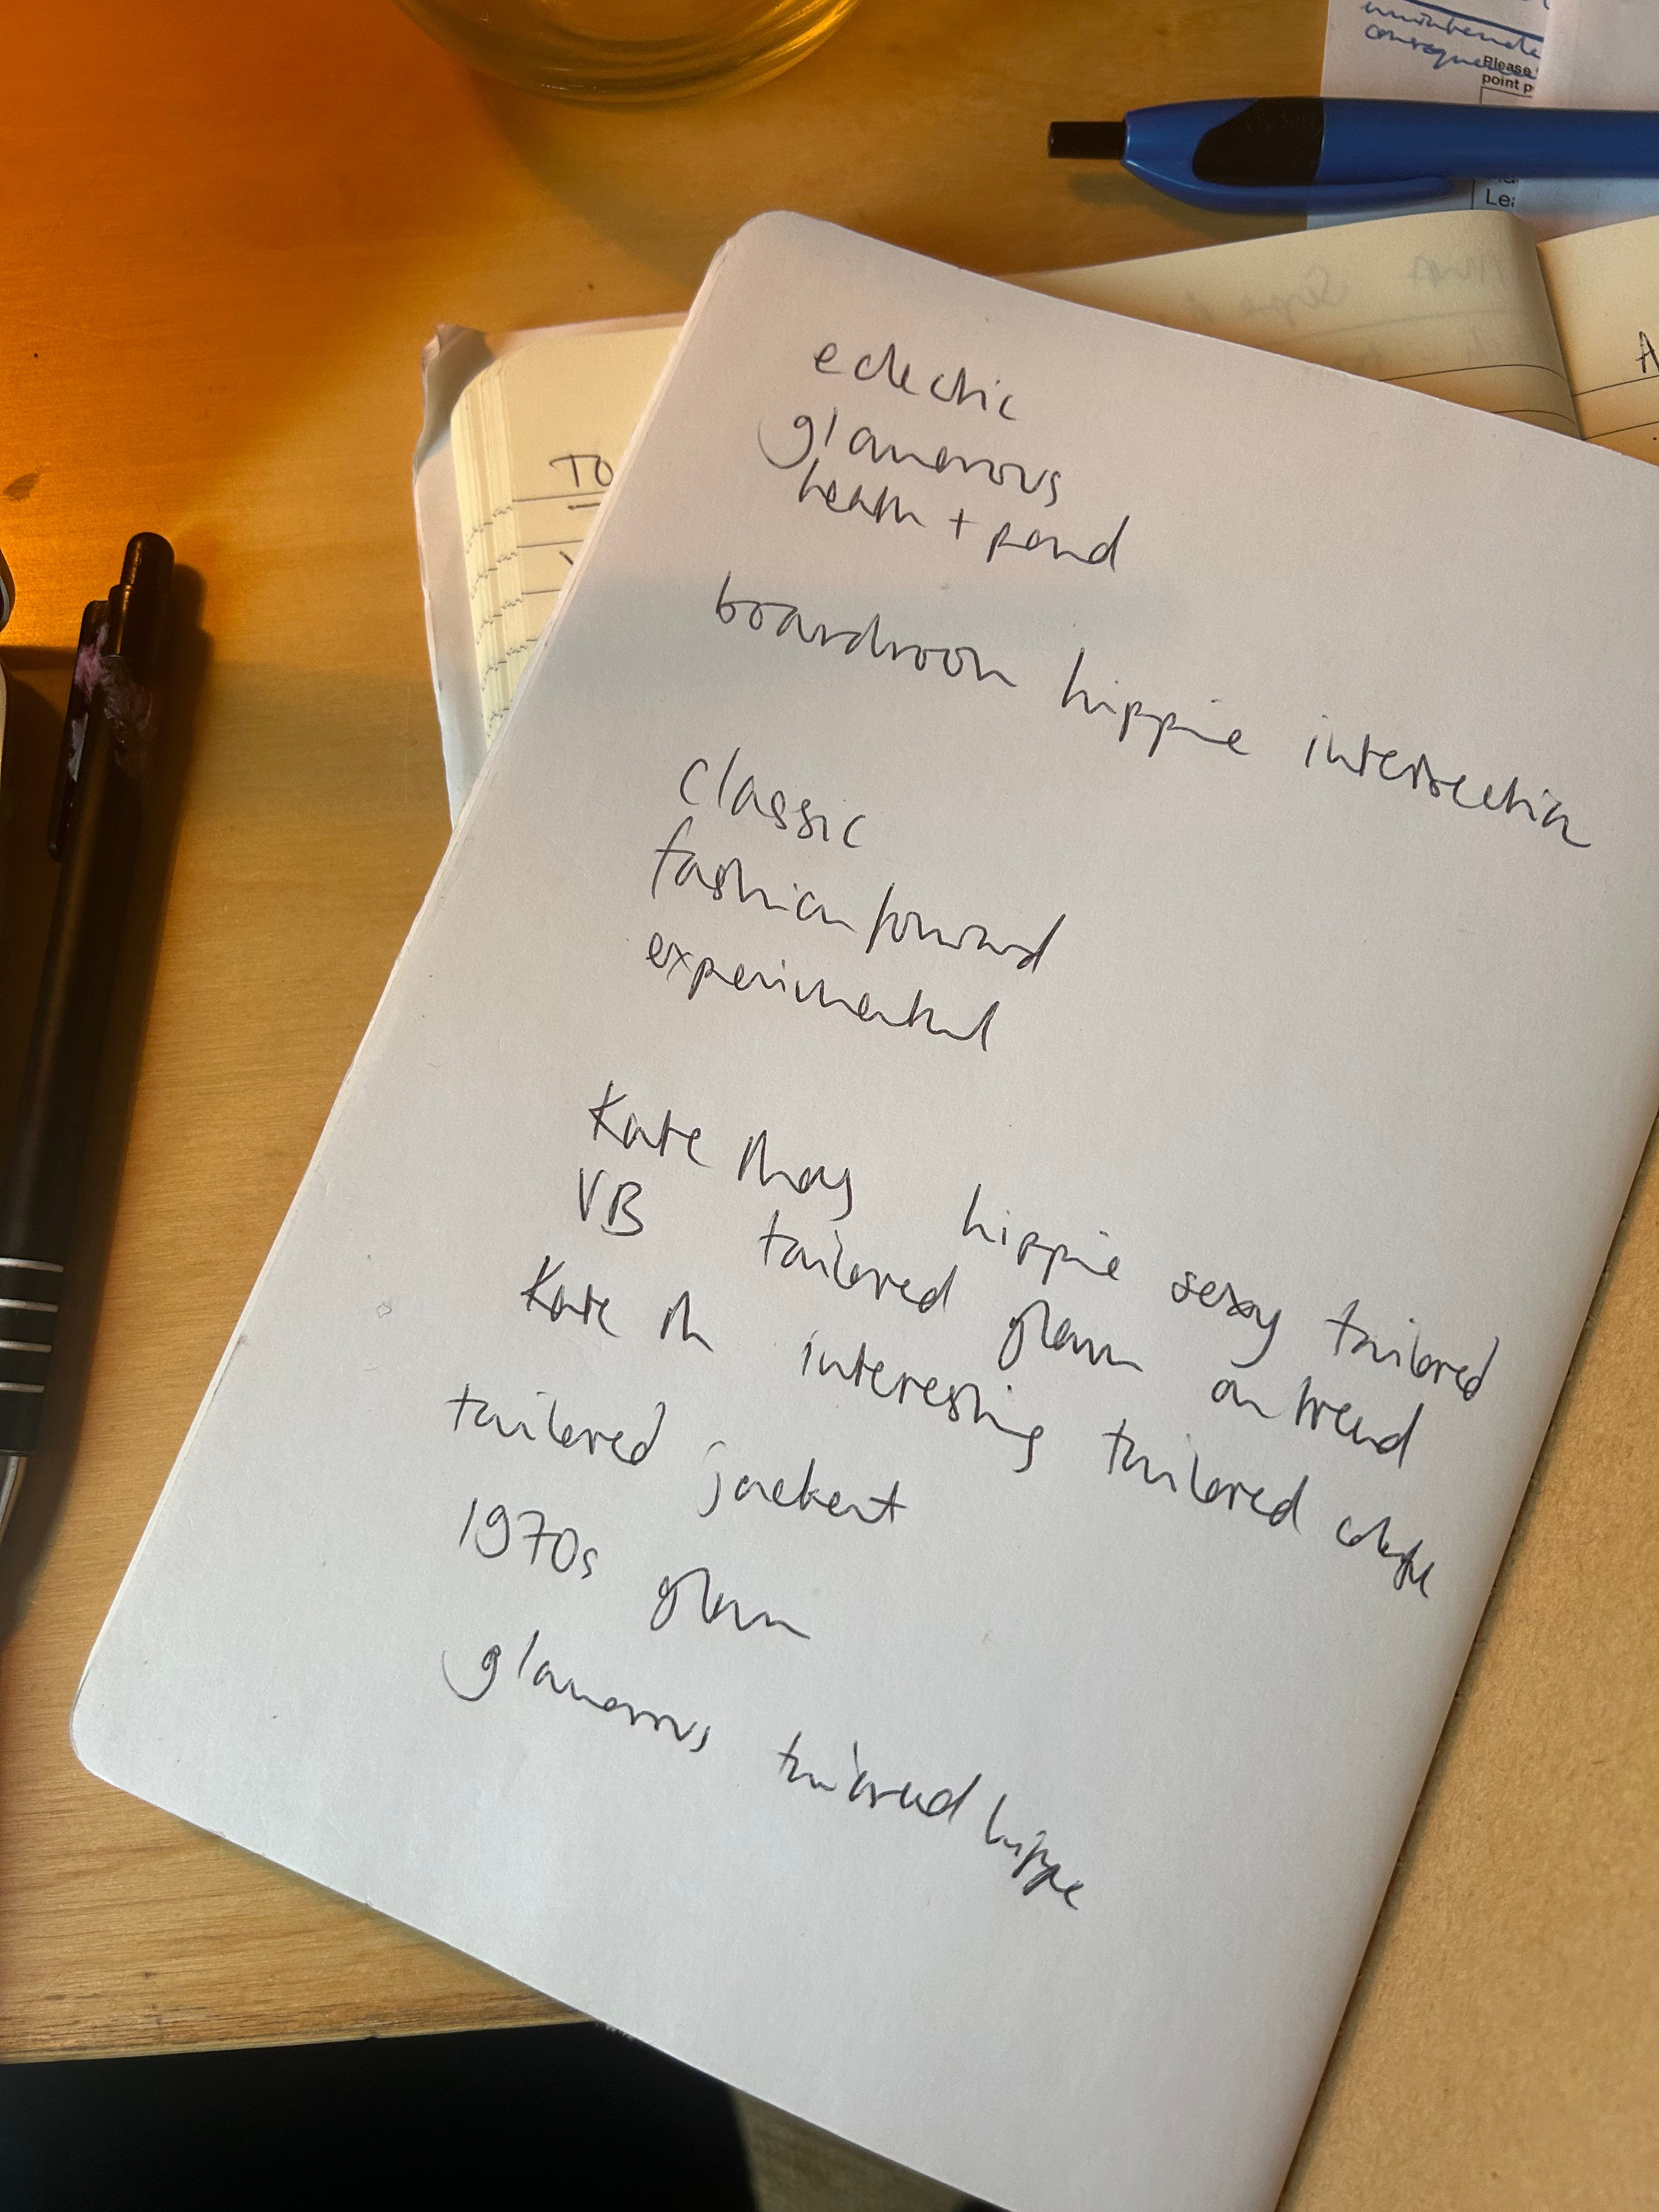 unintende
conseque
Please
point p
Lea
A
TO
eclectic
glamorous
heath + pond
boardroom hippie intersection
classic
fashion forward
experimental
Kate Moss hippie sexy tailored
VB tailored glam on trend
Kate M interesting tailored
tailored jacket
1970s glam
glamorous tailored hippie